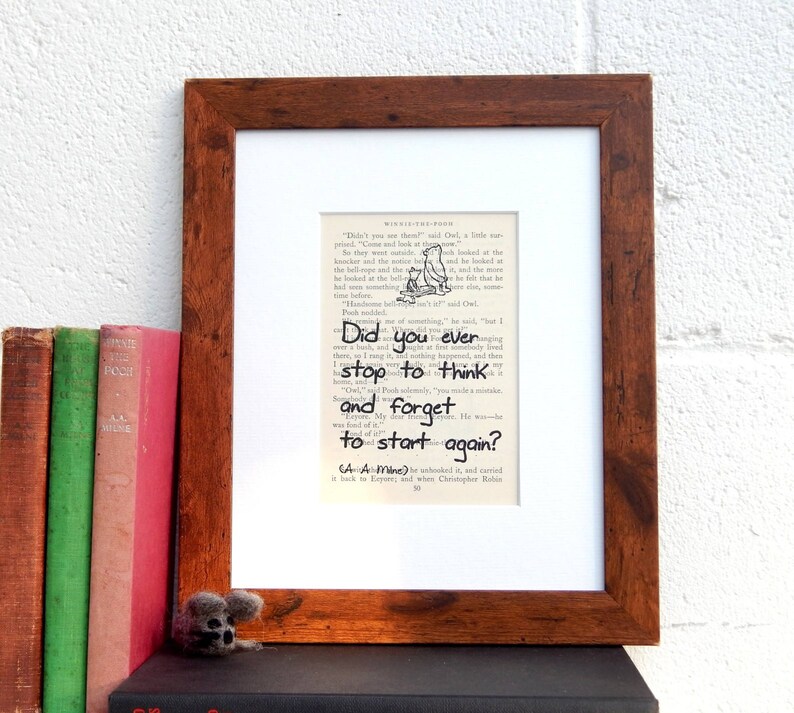 WINNIE
THE
POOH
A.A.
MILNE
WINNIE-THE-POOH
"Didn't you see them?" said Owl, a little sur-
prised. "Come and look at them now."
So they went outside. And Pooh looked at the
knocker and the notice below it, and he looked at
the bell-rope and the notice below it, and the more
he looked at the bell-rope, more he felt that he
had seen something like else, some-
time before.
"Handsome bell-rope, isn't it?" said Owl.
Pooh nodded.
"It reminds me of something," he said, "but I
can't think what. Where did you get it?"
Did you ever
over a bush, and I thought at first somebody lived
there, so I rang it, and nothing happened, and then
stop to think
home, and—"
"Owl," said Pooh solemnly, "you made a mistake.
Somebody did want it."
and forget
"Eeyore. My dear friend Eeyore. He was—he
was fond of it."
"Fond of it?"
to start again?
(A A Milne)
he unhooked it, and carried
it back to Eeyore; and when Christopher Robin
50